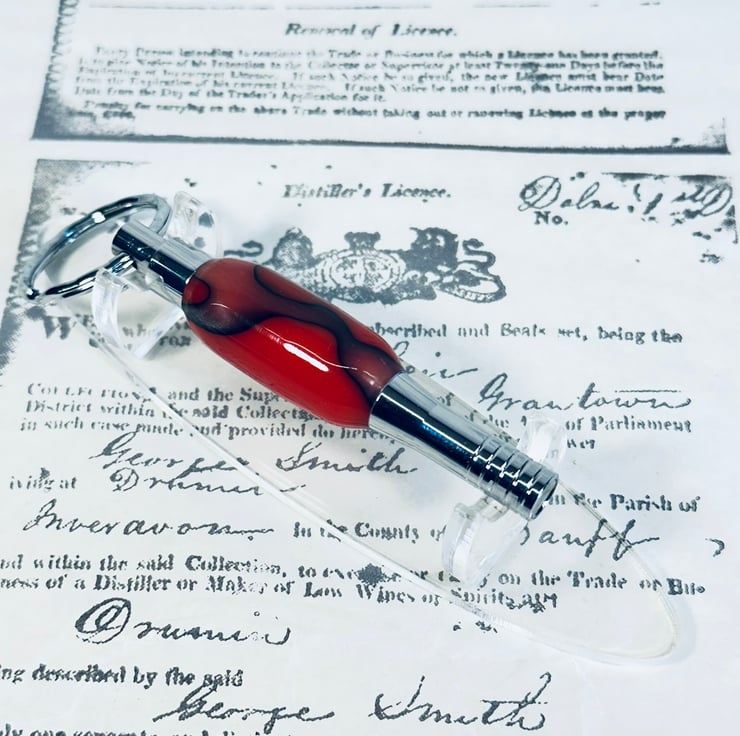 Renewal of Licence.
Every Person intending to continue the Trade or Business for which a Licence has been granted,
is to give Notice of his Intention to the Collector or Supervisor at least Twenty-one Days before the
Expiration of his current Licence. If such Notice be so given, the new Licence must bear Date
from the Expiration of his current Licence. If such Notice be not so given, the Licence must bear
Date from the Day of the Trader's Application for it.
Penalty for carrying on the above Trade without taking out or renewing Licence at the proper
Distiller's Licence.
No.
W
subscribed and Seals set, being the
Grantown
COLLECTION and the
District within the said of the of Parliament
in such case made and provided do hereby
George Smith
iving at Drumin in the Parish of
Inveravon In the County of Banff
nd within the said Collection, to or on the Trade or Bu-
ness of a Distiller or Maker of Low Wines or Spirits at
Drumin
ng described by the said
George Smith
ly one separate and